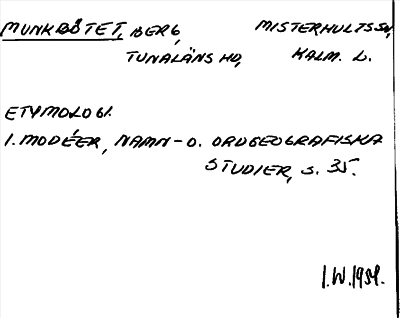 MUNKBÅTET, BERG, MISTERHULTS SN,
TUNALÄNS HD, KALM. L.
ETYMOLOGI.
I. MODÉER, NAMN- O. ORDGEOGRAFISKA
STUDIER, S. 35.
I.W. 1934.